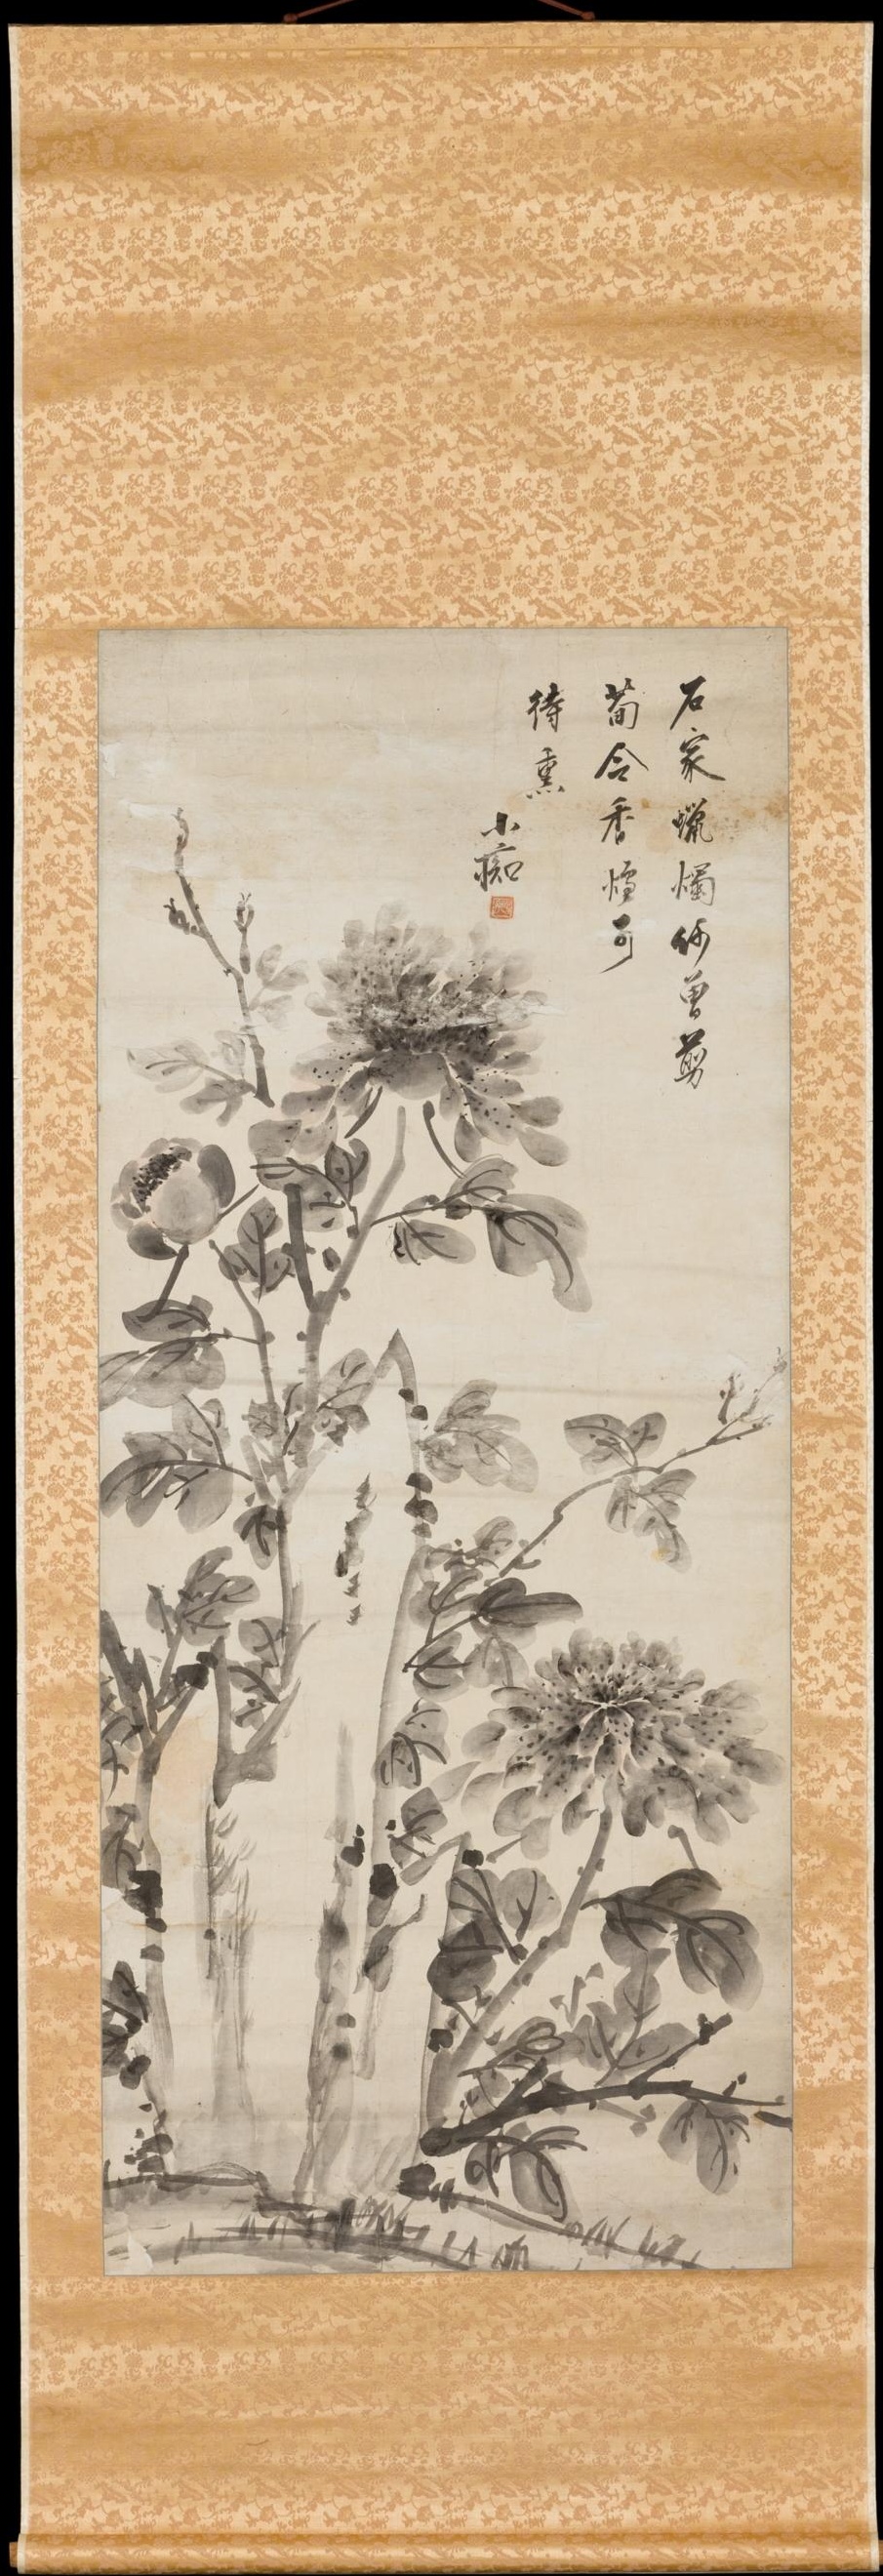 石家蠟燭何曾剪
荀令香爐可
待熏
小痴